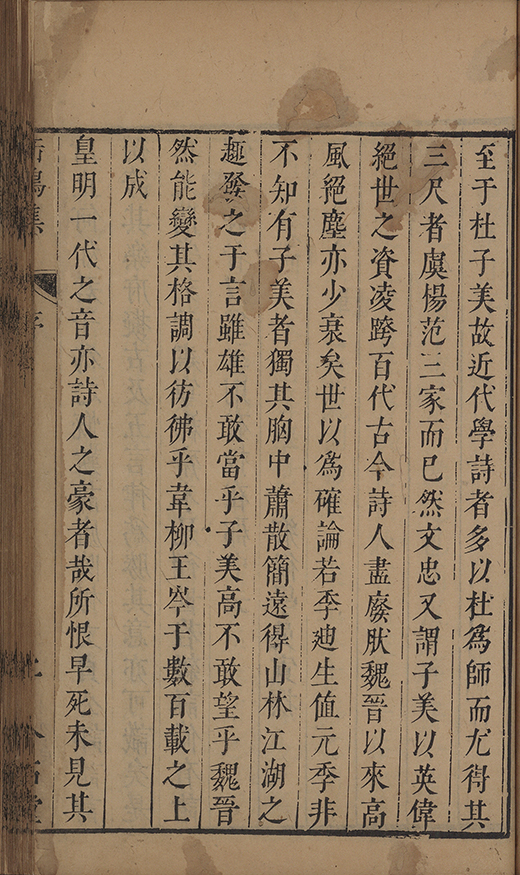 至于杜子美故近代學詩者多以杜爲師而尤得其
三尺者虞楊范三家而已然文忠又謂子美以英偉
絕世之資凌跨百代古今詩人盡廢肰魏晉以來高
風絕塵亦少衰矣世以爲確論若季廸生值元季非
不知有子美者獨其胸中蕭散簡遠得山林江湖之
趣發之于言雖雄不敢當乎子美高不敢望乎魏晉
然能變其格調以彷彿乎韋柳王岑于數百載之上
以成
皇明一代之音亦詩人之豪者哉所恨早死未見其
鳴集
序